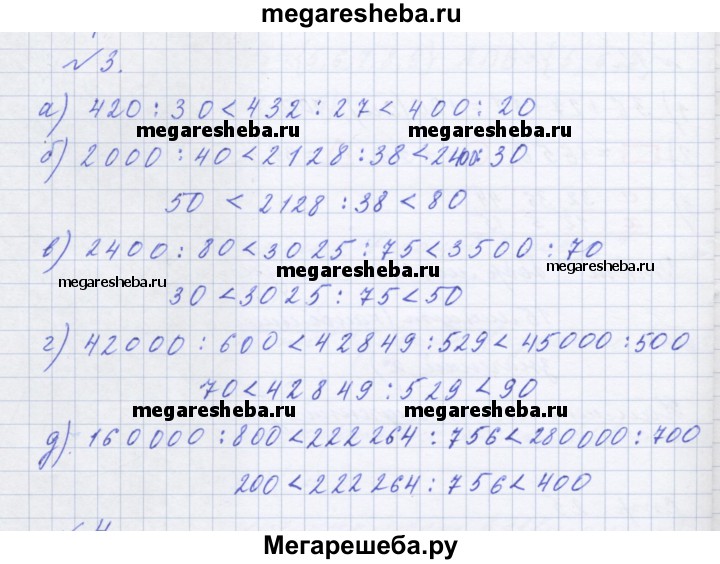 megaresheba.ru
№3.
а) 420 : 30 < 432 : 27 < 400 : 20
megaresheba.ru megaresheba.ru
б) 2000 : 40 < 2128 : 38 < 2400 : 30
50 < 2128 : 38 < 80
в) 2400 : 80 < 3025 : 75 < 3500 : 70
megaresheba.ru megaresheba.ru megaresheba.ru
30 < 3025 : 75 < 50
г) 42000 : 600 < 42849 : 529 < 45000 : 500
70 < 42849 : 529 < 90
megaresheba.ru megaresheba.ru
д) 160000 : 800 < 222264 : 756 < 280000 : 700
200 < 222264 : 756 < 400
Мегарешеба.ру